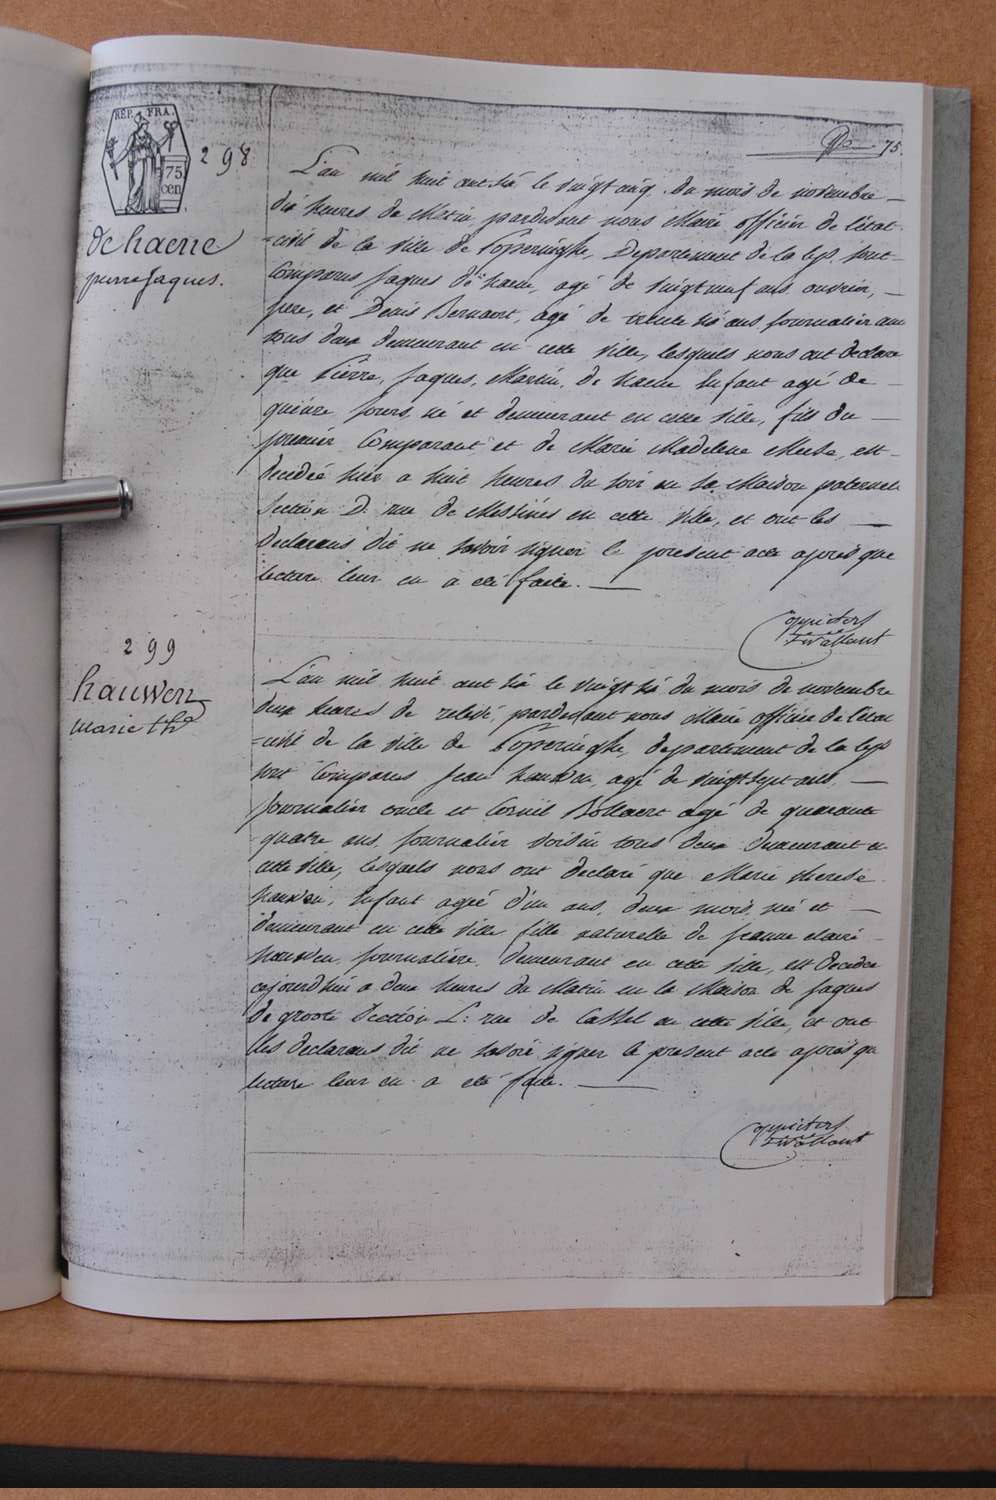 RÉP. FRA.
75
cen
75.
298
de haene
pierre Jaques.
L'an mil huit cent six le vingt cinq du mois de novembre
dix heures de Matin pardevant nous Maire officier de l'état
civil de la ville de Poperinghe, Departement de la Lys, sont
Comparus Jaques de haene, agé de vingt neuf ans ouvrier,
pere, et Denis Bernaert, agé de trente six ans journalier
tous deux demeurant en cette ville, lesquels nous ont declaré
que Pierre, Jaques, Martin, de haene Enfant agé de
quinze jours né et demeurant en cette ville, fils du
premier Comparant et de Marie Madelene est
decedée hier a huit heures du soir en sa Maison paternel
Section D. rue de Messines en cette ville, et ont les
declarans dit ne savoir signer le present acte après que
lecture leur en a eté faite.
299
hauwen
marie th.e
L'an mil huit cent six le vingt six du mois de novembre
deux heures de relevé, pardevant nous Maire officier de l'état
civil de la ville de Poperinghe, departement de la Lys
sont Comparus Jean hauwen, agé de vingt sept ans,
journalier oncle et Cornil Bollaert agé de quarante
quatre ans, journalier voisin tous deux demeurant en
cette ville, lesquels nous ont declaré que Marie therese
hauwen, Enfant agée d'un ans, deux mois, née et
demeurant en cette ville fille naturelle de jeanne claire
hauwen, journaliere, demeurant en cette ville, est decedee
aujourd'hui a deux heures du Matin en la Maison de Jaques
de groote Section L: rue de Cassel en cette ville, et ont
les declarans dit ne savoir signer le present acte après qu
lecture leur en a eté faite.